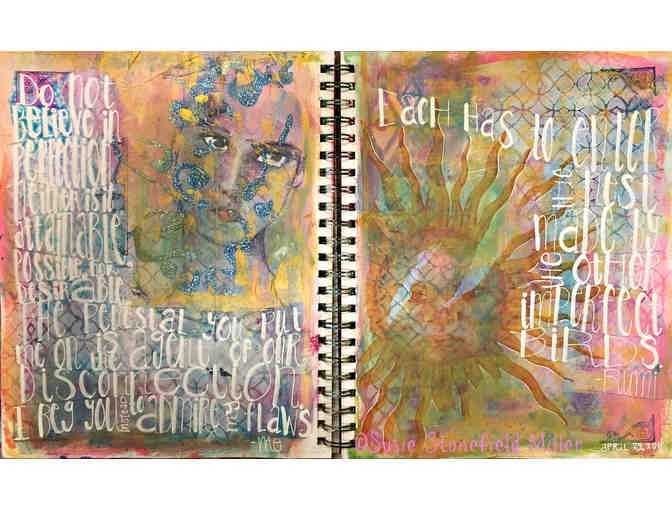 Do not
Believe in
PERFECTION
available
Possible
DESiRABLE
THE PEDESTAL YOU PUT
ME ON iS AGENT OF OUR
DiSCONNECTION.
I BEG YOU INSTEAD ADMIRE MY FLAWS
-MG
EACH HAS TO ENTER
THE NEST
MADE BY
THE OTHER
iMPERFECT
BiRDS
-RUMi
©Susie Stonefield Miller
APRIL